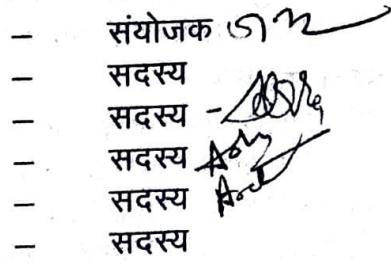 – संयोजक
– सदस्य
– सदस्य -
– सदस्य
– सदस्य
– सदस्य